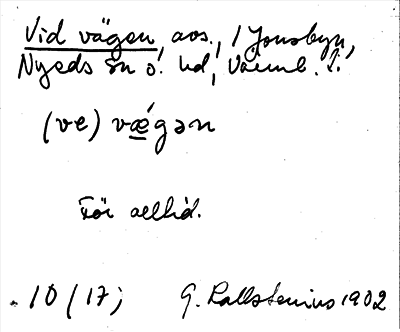 Vid vägen, avs., i Jonsbyn,
Nyeds sn o. hd, Värml. l.
(ve) vǽgən
För alltid.
10 (17; G. Kallstenius 1902